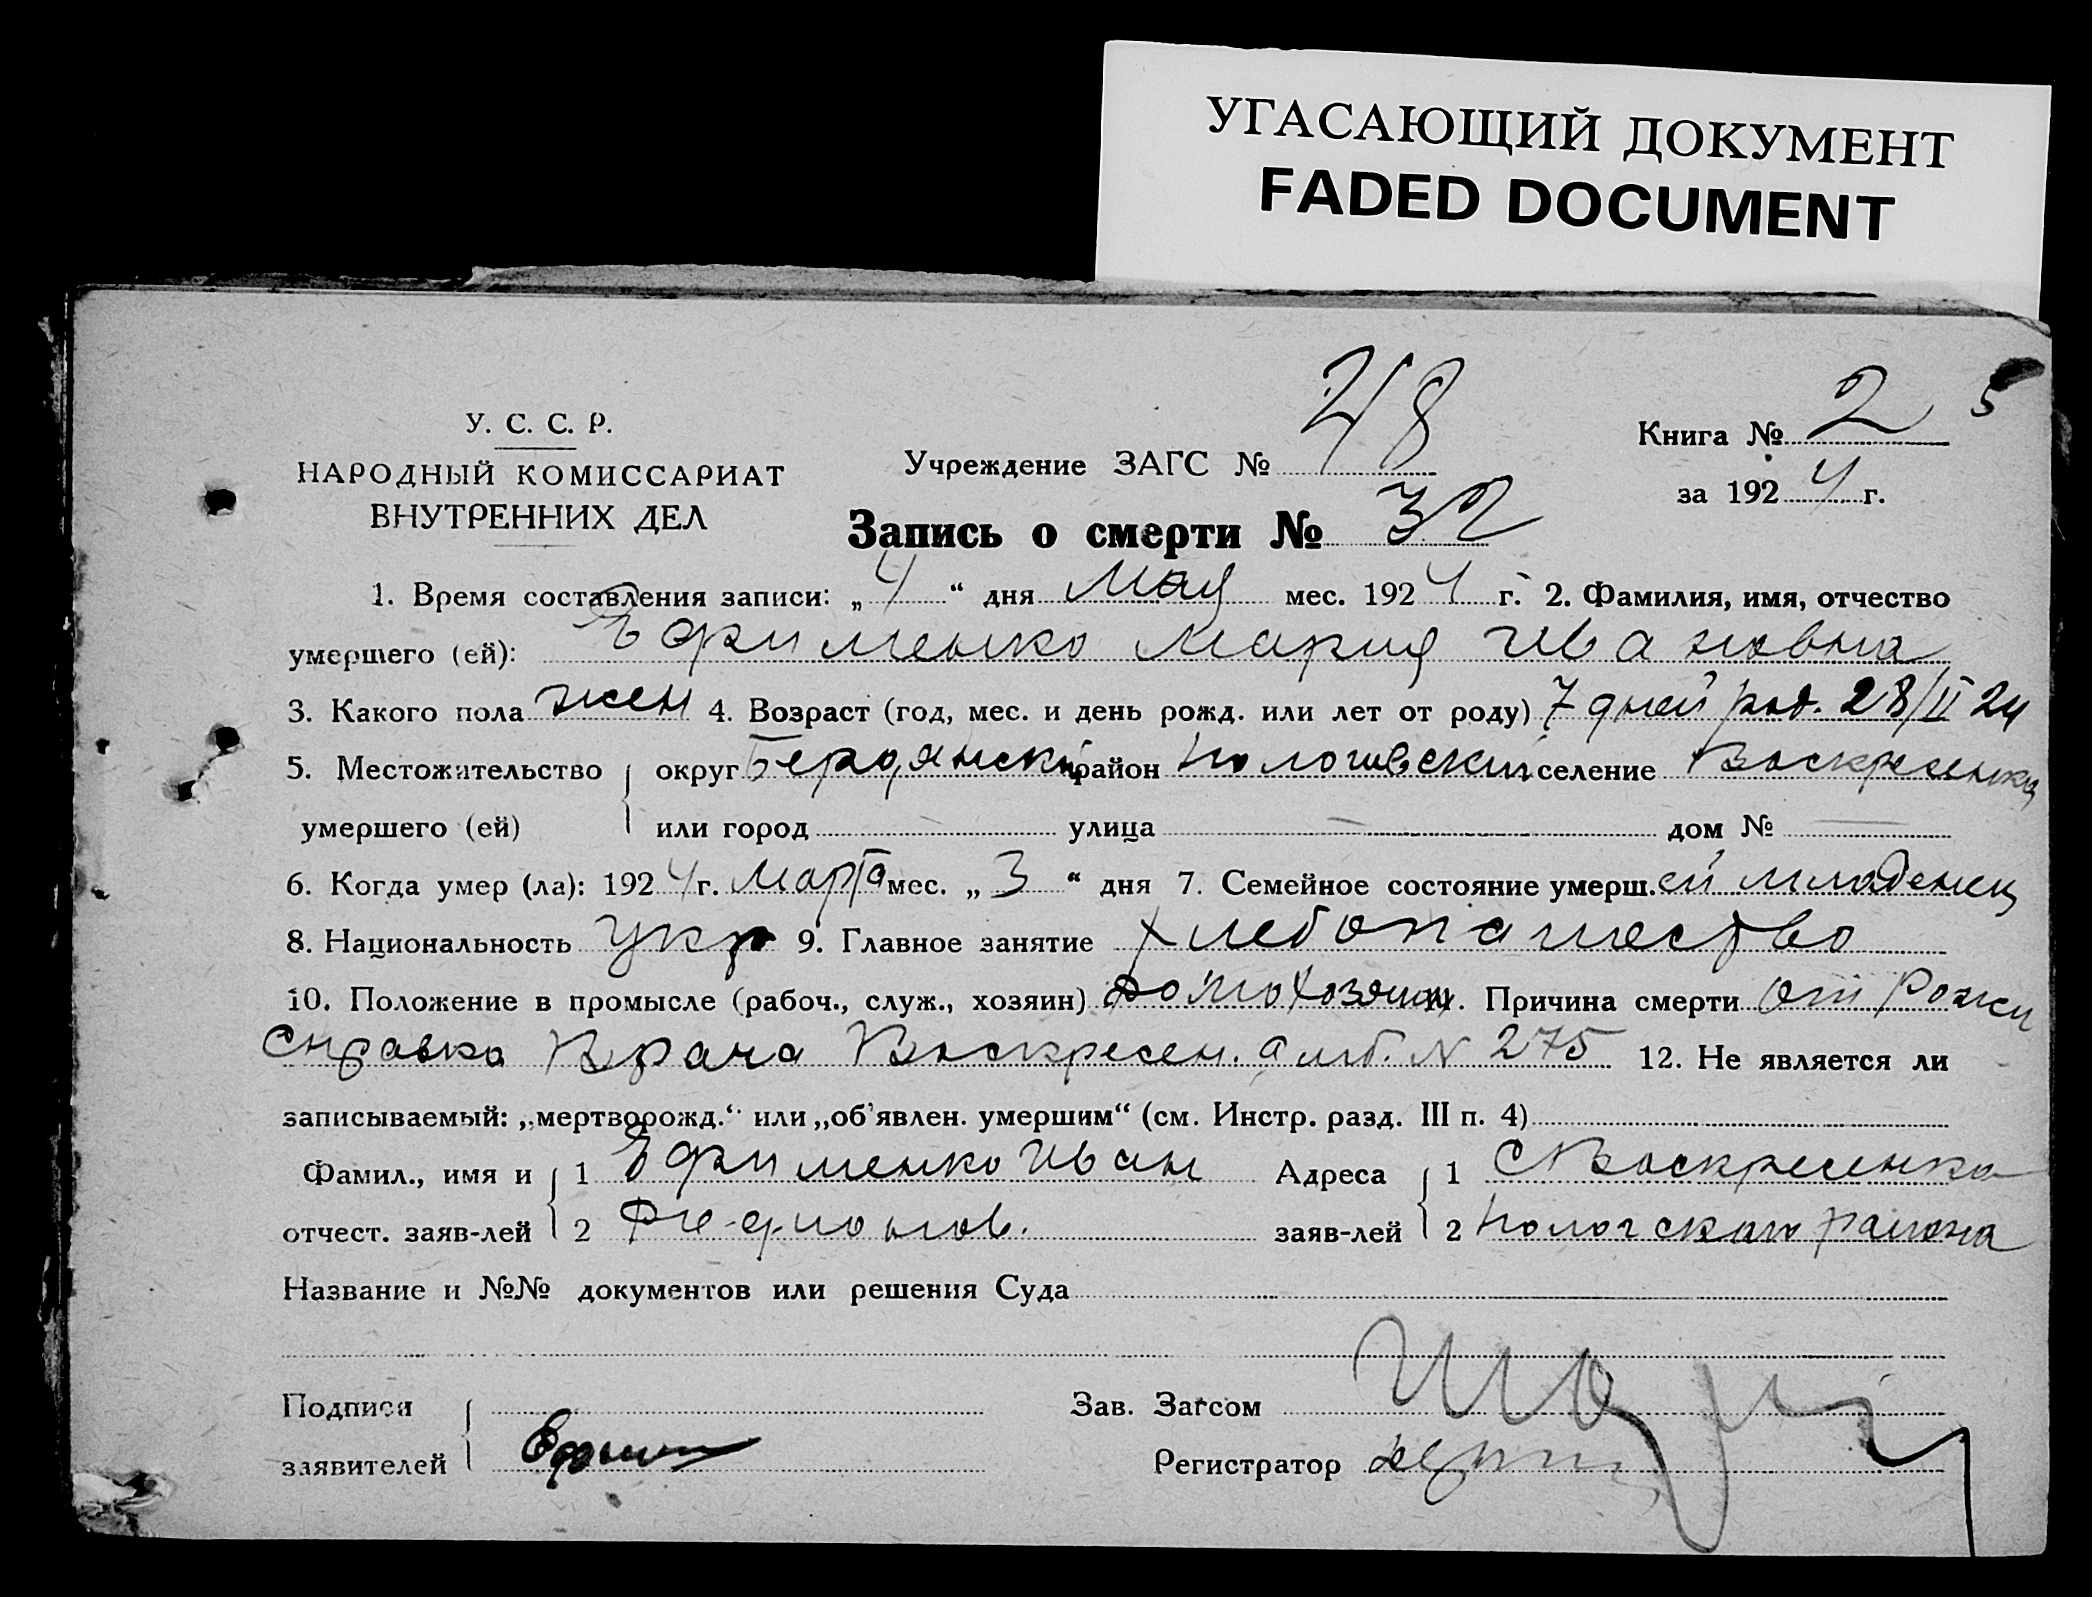 УГАСАЮЩИЙ ДОКУМЕНТ
FADED DOCUMENT
У. С. С. Р.
НАРОДНЫЙ КОМИССАРИАТ
ВНУТРЕННИХ ДЕЛ
Учреждение ЗАГС № 48
Книга № 2 5
за 1924 г.
Запись о смерти № 32
1. Время составления записи: „4“ дня Мая мес. 1924 г. 2. Фамилия, имя, отчество
умершего (ей): Ефименко Мария Ивановна
3. Какого пола жен 4. Возраст (год, мес. и день рожд. или лет от роду) 7 дней род. 28/II 24
5. Местожительство округ Бердянский район Пологивский селение Воскресенка
умершего (ей) или город — улица — дом № —
6. Когда умер (ла): 1924 г. Марта мес. „3“ дня 7. Семейное состояние умерш.ей младенец
8. Национальность укр 9. Главное занятие хлебопашество
10. Положение в промысле (рабоч., служ., хозяин) домохозяин 11. Причина смерти от Рожи
Справка Врача Воскресен. амб. N 275 12. Не является ли
записываемый: „мертворожд.“ или „об'явлен. умершим“ (см. Инстр. разд. III п. 4)
Фамил., имя и 1 Ефименко Иван Адреса 1 С Воскресенка
отчест. заяв-лей 2 заяв-лей 2 Пологского района
Название и №№ документов или решения Суда
Подписи Зав. Загсом
заявителей Регистратор